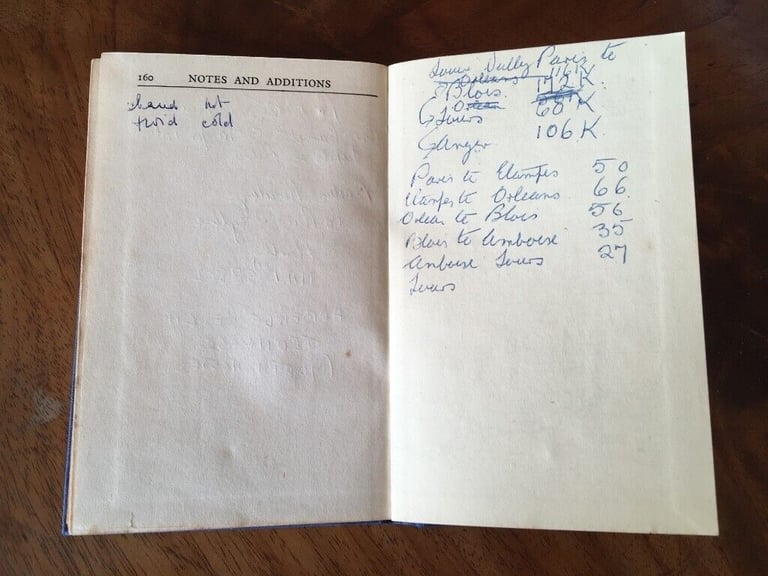 160 NOTES AND ADDITIONS
chaud hot
froid cold
Paris to
Orleans 116 K
Blois 172 K.
Orlean
Tours 60 K
Angers 106 K.
Paris to Etampes 50
Etampes to Orleans 66
Orlean to Blois 56
Blois to Amboise 35
Amboise Tours 27
Tours